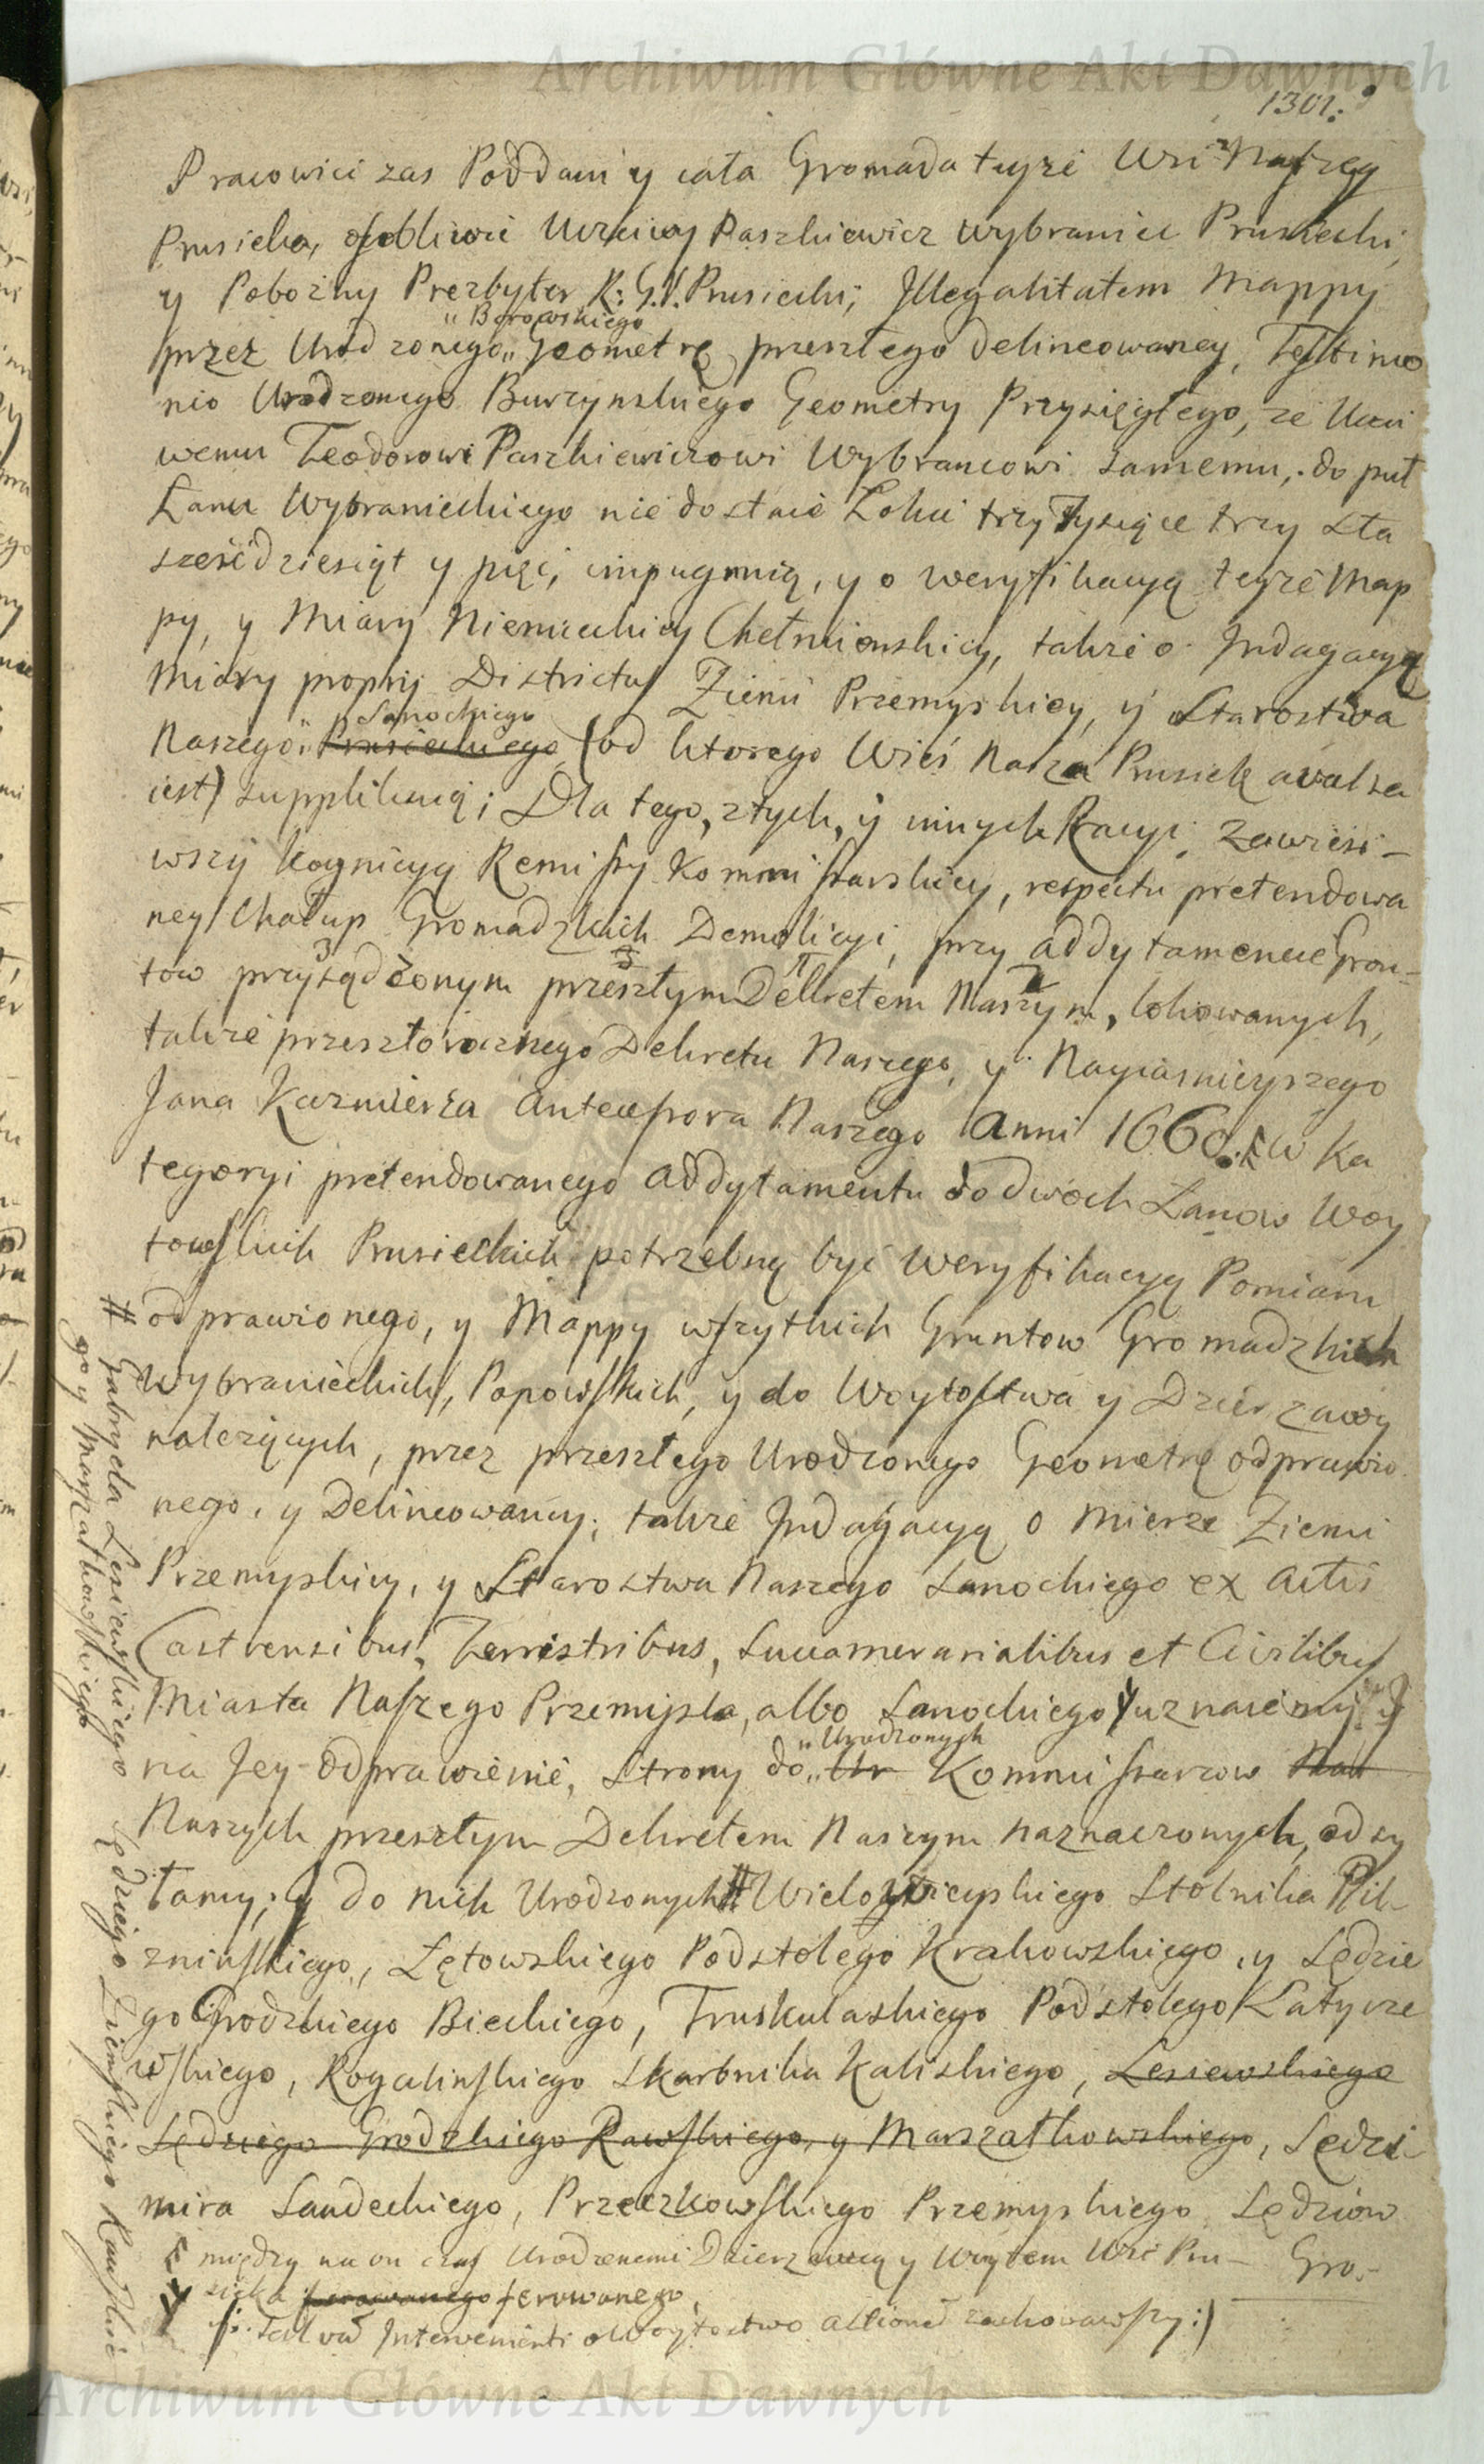 Archiwum Główne Akt Dawnych
1301.
Pracowici zas Poddani y cała Gromada tyze Wsi Naszey
Prusieka, osobliwie Uczciwy Paszkiewicz Wybraniec Prusiecki,
y Pobozny Prezbyter R: G. Prusiecki; Illegalitatem Mappy
„Borowskiego
przez Urodzonego „ Geometrę przeszłego delineowaney, Testimo
nio Urodzonego Burzynskiego Geometry Przysięgłego, ze Ucci
wemu Teodorowi Paszkiewiczowi Wybrancowi samemu, do puł
Łanu Wybranieckiego nie dostaie Łokci trzy Tysiące trzy sta
sześćdziesiąt y pięć, impugnuią, y o weryfikacyą teyze Map
py, y Miary Niemieckiey Chełmienskiey, takze o Indagacyą
Miary propriy Districtus Ziemi Przemyskiey, y Starostwa
„Sanockiego
Naszego „ Prusieckiego (od ktorego Wieś Nasza Prusiek avulsa
iest) supplikuią; Dla tego, z tych, y innych Racyi, Zawiesi-
wszy kognicyą Remissy Kommissarskiey, respectu pretendowa
ney Chałup Gromadzkich Demolicyi, przy addytamencie Grun-
tow przysądzonym przeszłym Dekretem Naszym, lokowanych,
takze przeszłorocznego Dekretu Naszego, y Nayiasnieyszego
Jana Kazmierza Antecessora Naszego Anni 1660. w Ka
tegoryi pretendowanego addytamentu do dwoch Łanow Woy
towskich Prusieckich potrzebną być Weryfikacyą Pomiaru
odprawionego, y Mappy wszytkich Gruntow Gromadzkich
Wybranieckich, Popowskich, y do Woytostwa y Dzierzawy
nalezących, przez przeszłego Urodzonego Geometrę odprawio
nego, y Delineowaney; takze Indagacyą o Mierze Ziemi
Przemyskiey, y Starostwa Naszego Sanockiego ex Actis
Castrensibus, Terrestribus, Succamerarialibus et Civilibus
Miasta Naszego Przemysla, albo Sanockiego uznaiemy, y
„Urodzonych
na Jey odprawienie, Strony do „ Ur Kommissarzow Nasz
Naszych przeszłym Dekretem Naszym naznaczonych, odsy
łamy; y do nich Urodzonych # Wielowieyskiego Stolnika Pil
znińskiego, Łętowskiego Podstolego Krakowskiego, y Sędzie
go Grodzkiego Bieckiego, Truskulaskiego Podstolego Latycze
wskiego, Rogalinskiego Skarbnika Kaliskiego, Lesiewskiego
Sędziego Grodzkiego Rawskiego, y Marszałkowskiego, Sędzi
mira Sandeckiego, Przeczkowskiego Przemyskiego Sędziow
Gro.-
między na on czas Urodzonemi Dzierzawcą y Woytem Wsi Pru-
sieka ferowanego ferowanego,
Salva Intervenienti o Woytostwo actione zachowawszy:)
# Gabryela Lesiewskiego Sędziego Ziemskiego Rawskie
go y Marszałkowskiego
Archiwum Główne Akt Dawnych